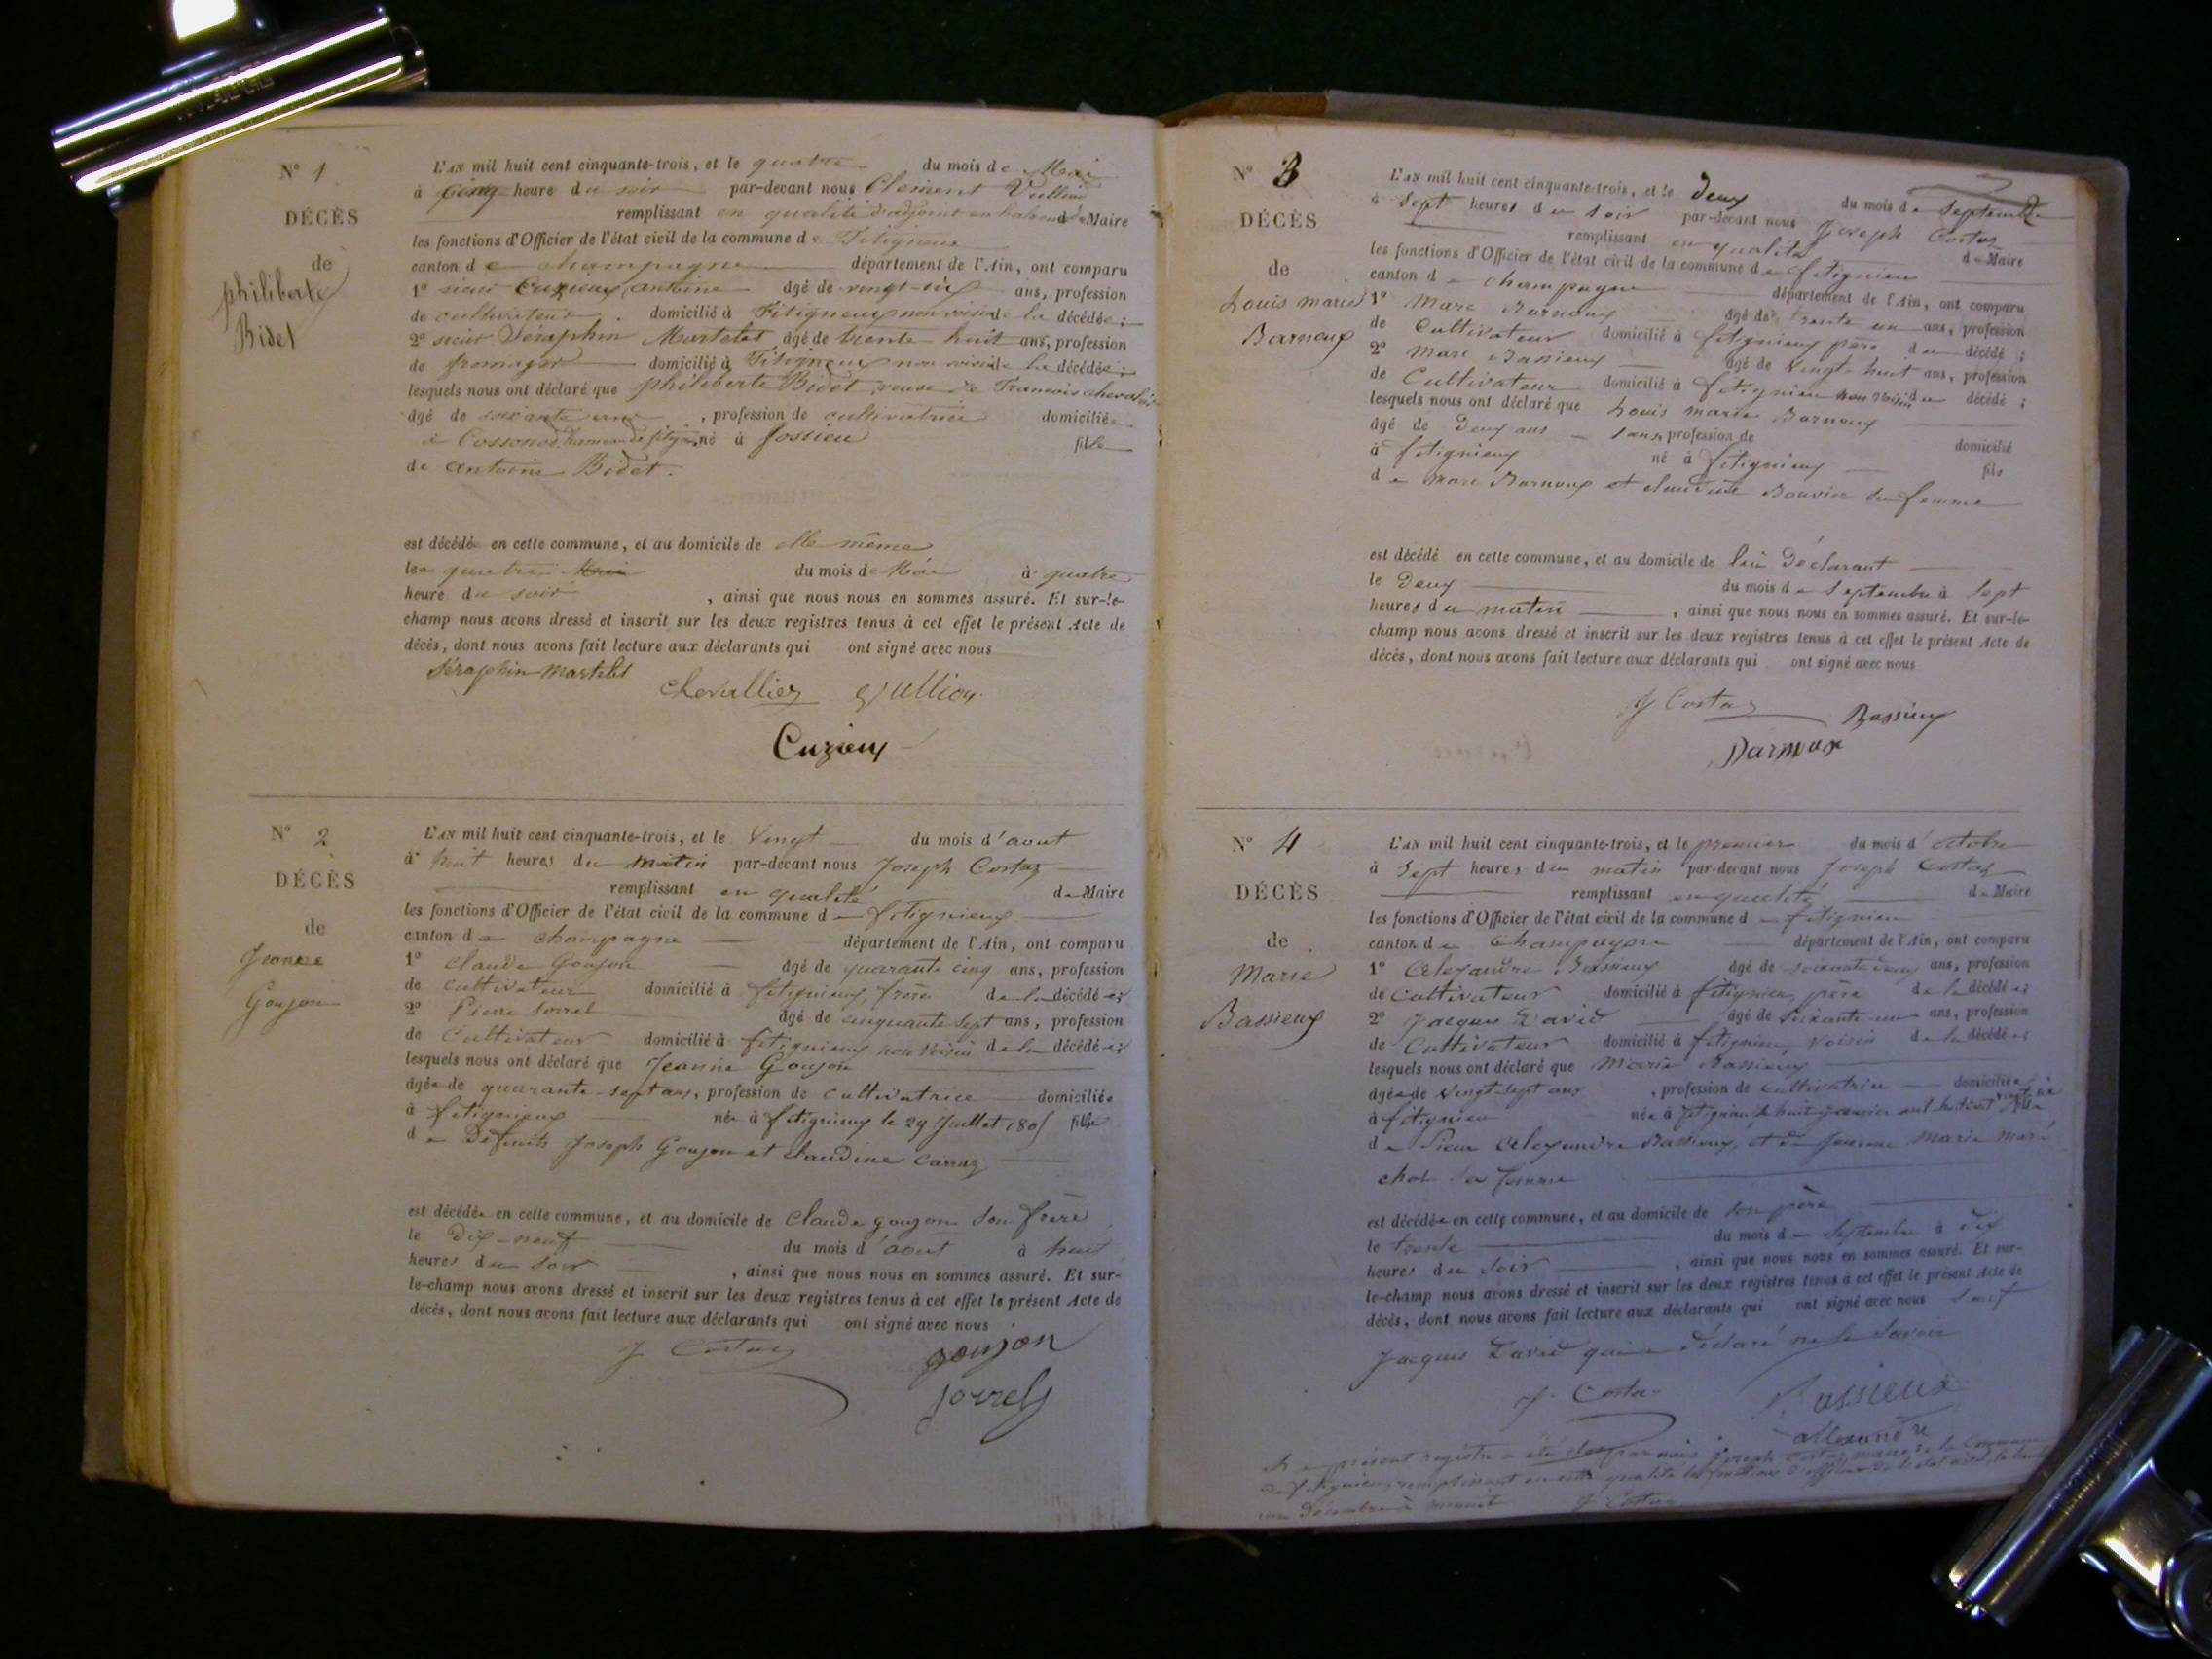 N° 1
DÉCÈS
de
philiberte
Bidet
L'AN mil huit cent cinquante-trois, et le quatre du mois de Mai
à cinq heure du soir par-devant nous Clement Vullion
remplissant en qualité d'adjoint en de Maire
les fonctions d'Officier de l'état civil de la commune de Fitignieux
canton de champagne département de l'Ain, ont comparu
1° sieur Cuzieux antoine âgé de vingt-six ans, profession
de cultivateur domicilié à Fitignieux non voisin de la décédée ;
2° sieur Séraphin Martelet âgé de trente huit ans, profession
de fromager domicilié à Fitignieux non voisin de la décédée ;
lesquels nous ont déclaré que philiberte Bidet, veuve de Francois chevalier
âgé de soixante , profession de cultivatrice domiciliée
à né à fossieu fille
de antoine Bidet.
est décédée en cette commune, et au domicile de elle même
le quatre Mai du mois de Mai à quatre
heure du soir , ainsi que nous nous en sommes assuré. Et sur-le-
champ nous avons dressé et inscrit sur les deux registres tenus à cet effet le présent Acte de
décès, dont nous avons fait lecture aux déclarants qui ont signé avec nous
Séraphin Martelet
chevallier Vullion
Cuzieux
N° 2
DÉCÈS
de
Jeanne
Goujon
L'AN mil huit cent cinquante-trois, et le Vingt du mois d'aout
à huit heures du matin par-devant nous Joseph Costaz
remplissant en qualité de Maire
les fonctions d'Officier de l'état civil de la commune de fitignieux
canton de champagne département de l'Ain, ont comparu
1° claude Goujon âgé de quarante cinq ans, profession
de cultivateur domicilié à fitignieux, frère de la décédée ;
2° Pierre Sorrel âgé de cinquante sept ans, profession
de Cultivateur domicilié à fitignieux non voisin de la décédée ;
lesquels nous ont déclaré que Jeanne Goujon
âgée de quarante-sept ans, profession de cultivatrice domiciliée
à fitignieux née à fitignieux le 29 Juillet 1805 fille
de Défunts Joseph Goujon et claudine Carraz
est décédée en cette commune, et au domicile de Claude goujon son frère
le dix-neuf du mois d'aout à huit
heures du soir , ainsi que nous nous en sommes assuré. Et sur-
le-champ nous avons dressé et inscrit sur les deux registres tenus à cet effet le présent Acte de
décès, dont nous avons fait lecture aux déclarants qui ont signé avec nous
J Costaz goujon
sorrel
N° 3
DÉCÈS
de
Louis marie
Barnoux
L'AN mil huit cent cinquante-trois, et le Deux du mois de Septembre
à Sept heures du soir par-devant nous Joseph Costaz
remplissant en qualité de Maire
les fonctions d'Officier de l'état civil de la commune de fitignieu
canton de champagne département de l'Ain, ont comparu
1° Marc Barnoux âgé de trente un ans, profession
de Cultivateur domicilié à fitignieux père du décédé ;
2° Marc Bassieux âgé de vingt-huit ans, profession
de Cultivateur domicilié à fitignieu non voisin du décédé ;
lesquels nous ont déclaré que Louis marie Barnoux
âgé de Deux ans sans profession de domicilié
à fitignieux né à fitignieux fils
de Marc Barnoux et claudine Bouvier sa femme
est décédé en cette commune, et au domicile de lui Déclarant
le Deux du mois de Septembre à Sept
heures du matin , ainsi que nous nous en sommes assuré. Et sur-le-
champ nous avons dressé et inscrit sur les deux registres tenus à cet effet le présent Acte de
décès, dont nous avons fait lecture aux déclarants qui ont signé avec nous
J Costaz Bassieux
Barnoux
N° 4
DÉCÈS
de
Marie
Bassieux
L'AN mil huit cent cinquante-trois, et le premier du mois d'octobre
à Sept heures du matin par-devant nous Joseph Costaz
remplissant en qualité de Maire
les fonctions d'Officier de l'état civil de la commune de fitignieu
canton de Champagne département de l'Ain, ont comparu
1° Alexandre Bassieux âgé de soixante deux ans, profession
de Cultivateur domicilié à fitignieu père de la décédée ;
2° Jacques David âgé de soixante-un ans, profession
de Cultivateur domicilié à fitignieu, voisin de la décédée ;
lesquels nous ont déclaré que Marie Bassieux
âgée de vingt-sept ans , profession de Cultivatrice domiciliée
à fitignieu née à fitignieu le huit Janvier mil huit cent fille
de Sieur Alexandre Bassieux, et de Jeanne Marie Maré
chol sa femme
est décédée en cette commune, et au domicile de son père
le trente du mois de Septembre à dix
heures du soir , ainsi que nous nous en sommes assuré. Et sur-
le-champ nous avons dressé et inscrit sur les deux registres tenus à cet effet le présent Acte de
décès, dont nous avons fait lecture aux déclarants qui ont signé avec nous sauf
Jacques David qui a déclaré ne le savoir
J. Costaz Bassieux
allexandre
Le présent registre a été clos par nous Joseph Costaz maire de la Commune
de fitignieu, remplissant en cette qualité les fonctions d'officier de l'etat civil, le trente
un Décembre à minuit J Costaz